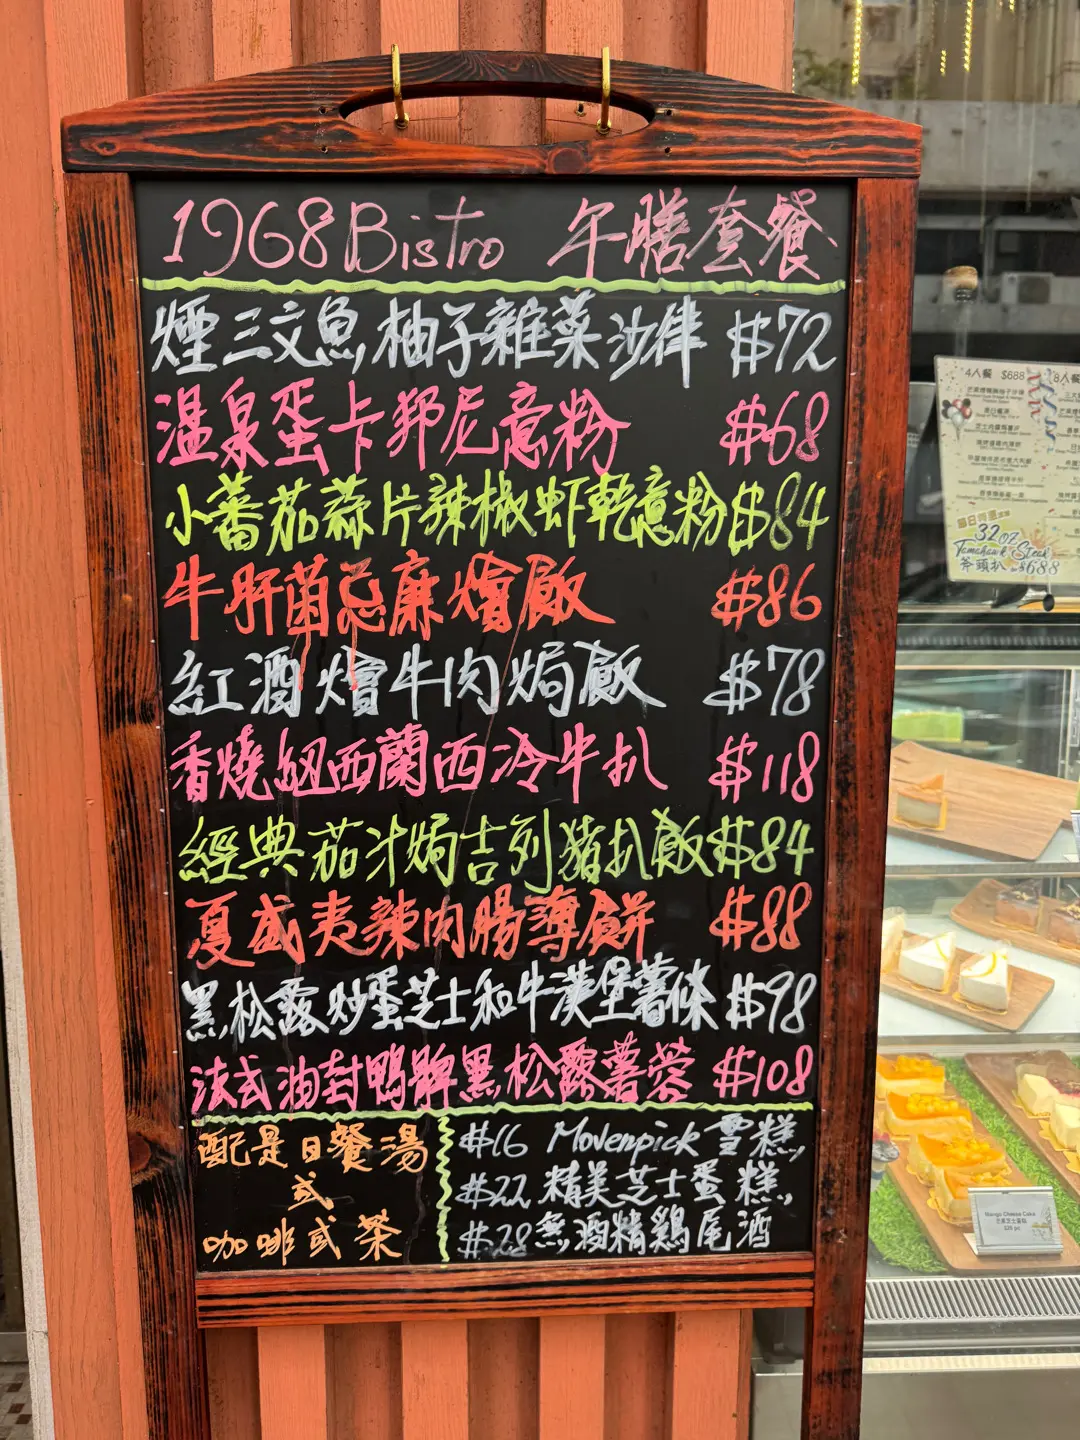 1968 Bistro 午膳套餐
煙三文魚,柚子雜菜沙律 $72
温泉蛋卡邦尼意粉 $68
小蕃茄蒜片辣椒虾乾意粉 $84
牛肝菌忌廉燴飯 $86
紅酒燴牛肉焗飯 $78
香燒紐西蘭西冷牛扒 $118
經典茄汁焗吉列豬扒飯 $84
夏威夷辣肉腸薄餅 $88
黑松露炒蛋芝士和牛漢堡薯條 $98
法式油封鴨髀黑松露薯蓉 $108
配是日餐湯
或
咖啡或茶
$16 Movenpick 雪糕,
$22 精美芝士蛋糕,
$28 無酒精鷄尾酒
4人餐 $688
8人餐
32oz
Tomahawk Steak
斧頭扒 $688
Mango Cheese Cake
芒果芝士蛋糕